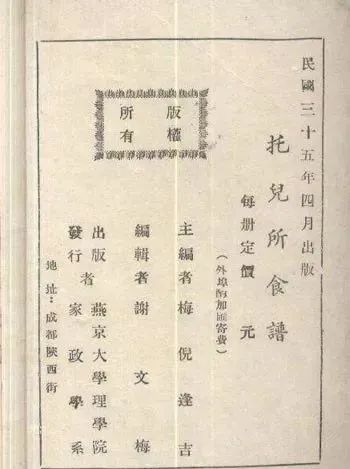 民國三十五年四月出版
托兒所食譜
每册定價　元
（外埠酌加匯寄費）
版權
所有
主編者梅倪逢吉
編輯者謝文梅
出版者 燕京大學理學院
發行者 家政學系
地址：成都陝西街